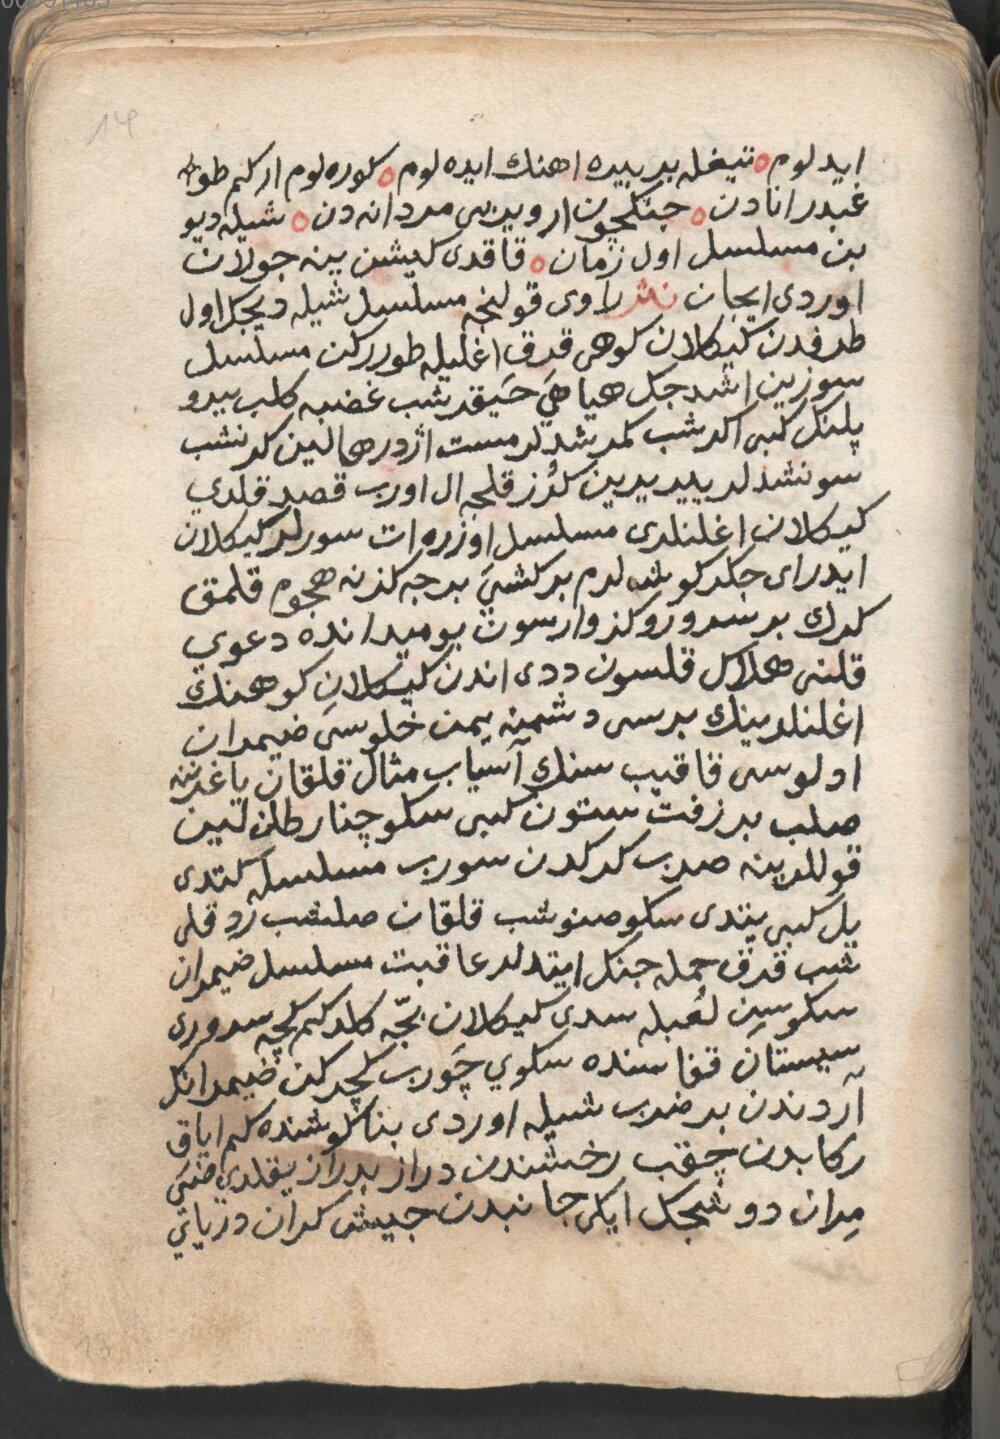 14
ايدلوم ٥ تيغله بر بيره اهنك ايده لوم ٥ كوره لوم ار كم طو
غبدر انادن ٥ جنكچون ار ويردي مردانه دن ٥ شيله ديو
بن مسلسل اول زمان ٥ قاقدى كيشن ينه جولان
اوردى ايجان نثر راوى قولنجه مسلسل شيله ديجك اول
طرفدن كيكلان كوهى قرق اغليله طوررکن مسلسل
سوزين اشدجك هياهي حيقرشب غضبه كلب ببرو
پلنك كبى اكرشب كمرشدلر مست اژدرها لين كرنشب
سونشدلر ييرييرين كرز قلجه ال اورب قصد قلدي
كيكلان اغلنلرى مسلسل اوزره ات سورلر كيكلان
ايدر اى جكر كوشه لرم بر كشيى برجه كزنه هجوم قلمق
كرك بر سرورو كز وارسون بو ميدانده دعوي
قلنى هلاك قلسون ددى اندن كيكلان كوهنك
اغلنلرينك برسى دشمنه يمن خلوسى ضيمران
اولوسى قاقيب سنك آسياب مثال قلقان ياغرننه
صلب بر زفت ستون كبى سكو چنار طلن لين
قوللرينه صرب كركدن سورب مسلسله كتدى
يل كبى يتدى سكو صنوشب قلقان صلشب رد قلى
شب قرق حمله جنك ايتدلر عاقبت مسلسل ضيمران
سكوسن لعبله سدى كيكلان بچه كلدكم كچه سرورى
سيستان قفاسنده سكوي چورب كچركن ضيمرانك
آردندن بر ضرب شيله اوردى بناكوشنده كم اياق
ركابدن چقب رخشندن دراز بدراز يقلدي ضى
مران دوشجك ايكى جانبدن جيش كران درياى
13